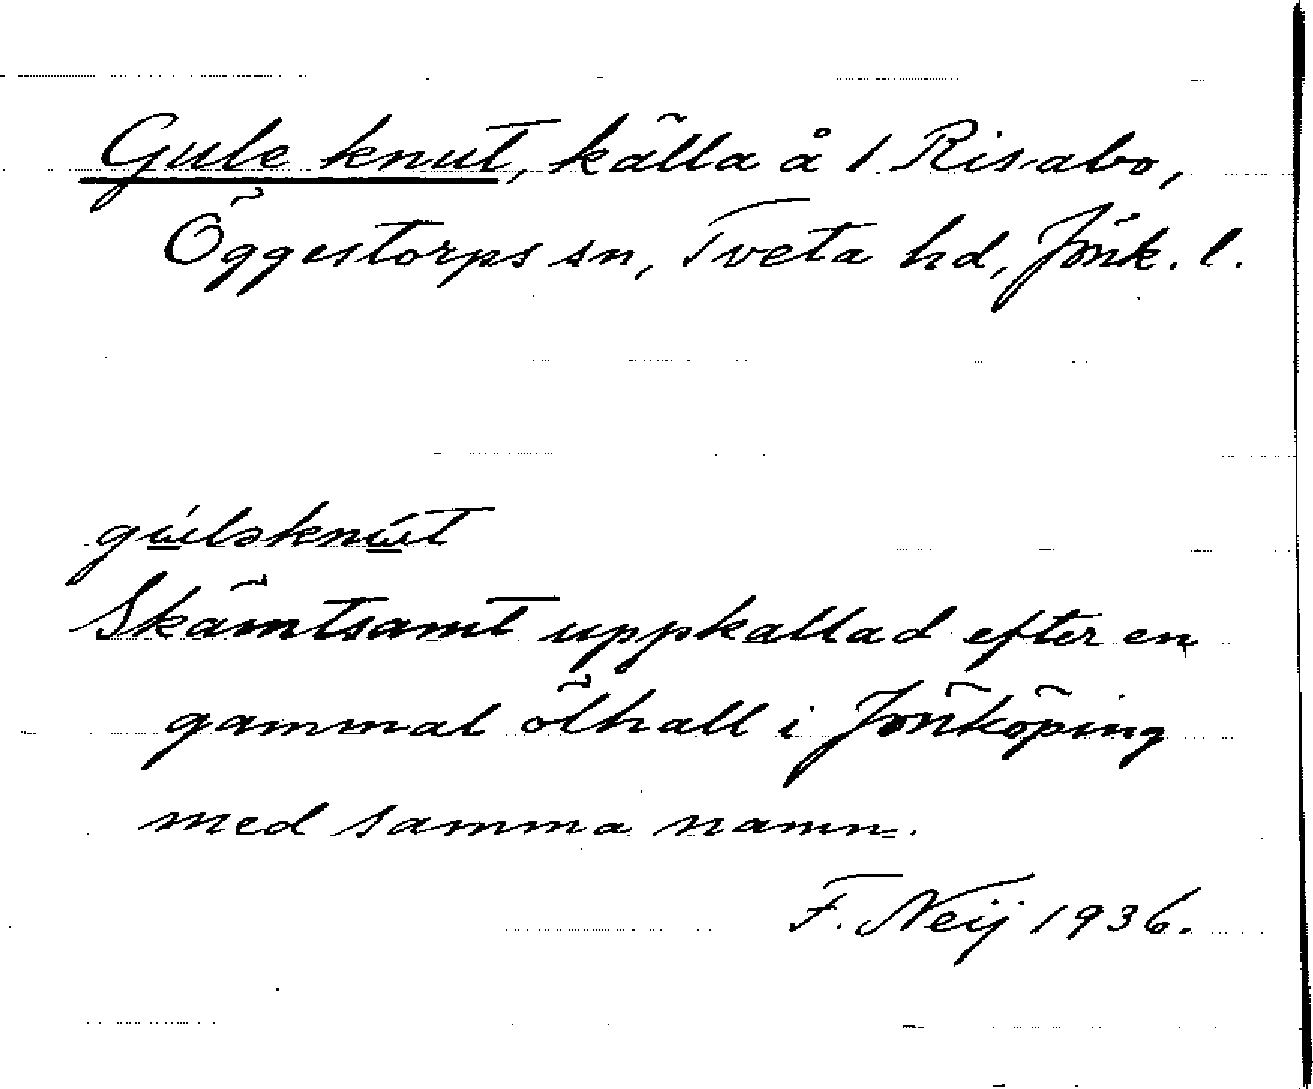 Gule knut, källa å 1 Risabo,
Öggestorps sn, Tveta hd, Jönk. l.
gɯ́ləknɯ́t
Skämtsamt uppkallad efter en
gammal ölhall i Jönköping
med samma namn.
F. Neij 1936.